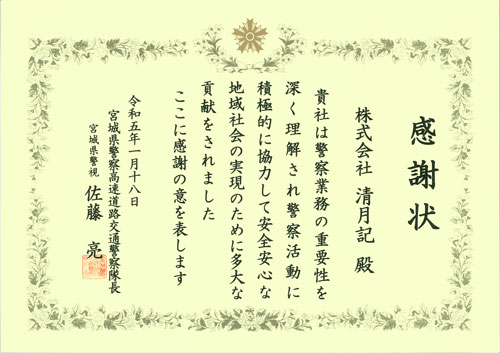 感謝状
株式会社 清月記 殿
貴社は警察業務の重要性を
深く理解され警察活動に
積極的に協力して安全安心な
地域社会の実現のために多大な
貢献をされました
ここに感謝の意を表します
令和五年一月十八日
宮城県警察高速道路交通警察隊長
宮城県警視 佐藤 亮